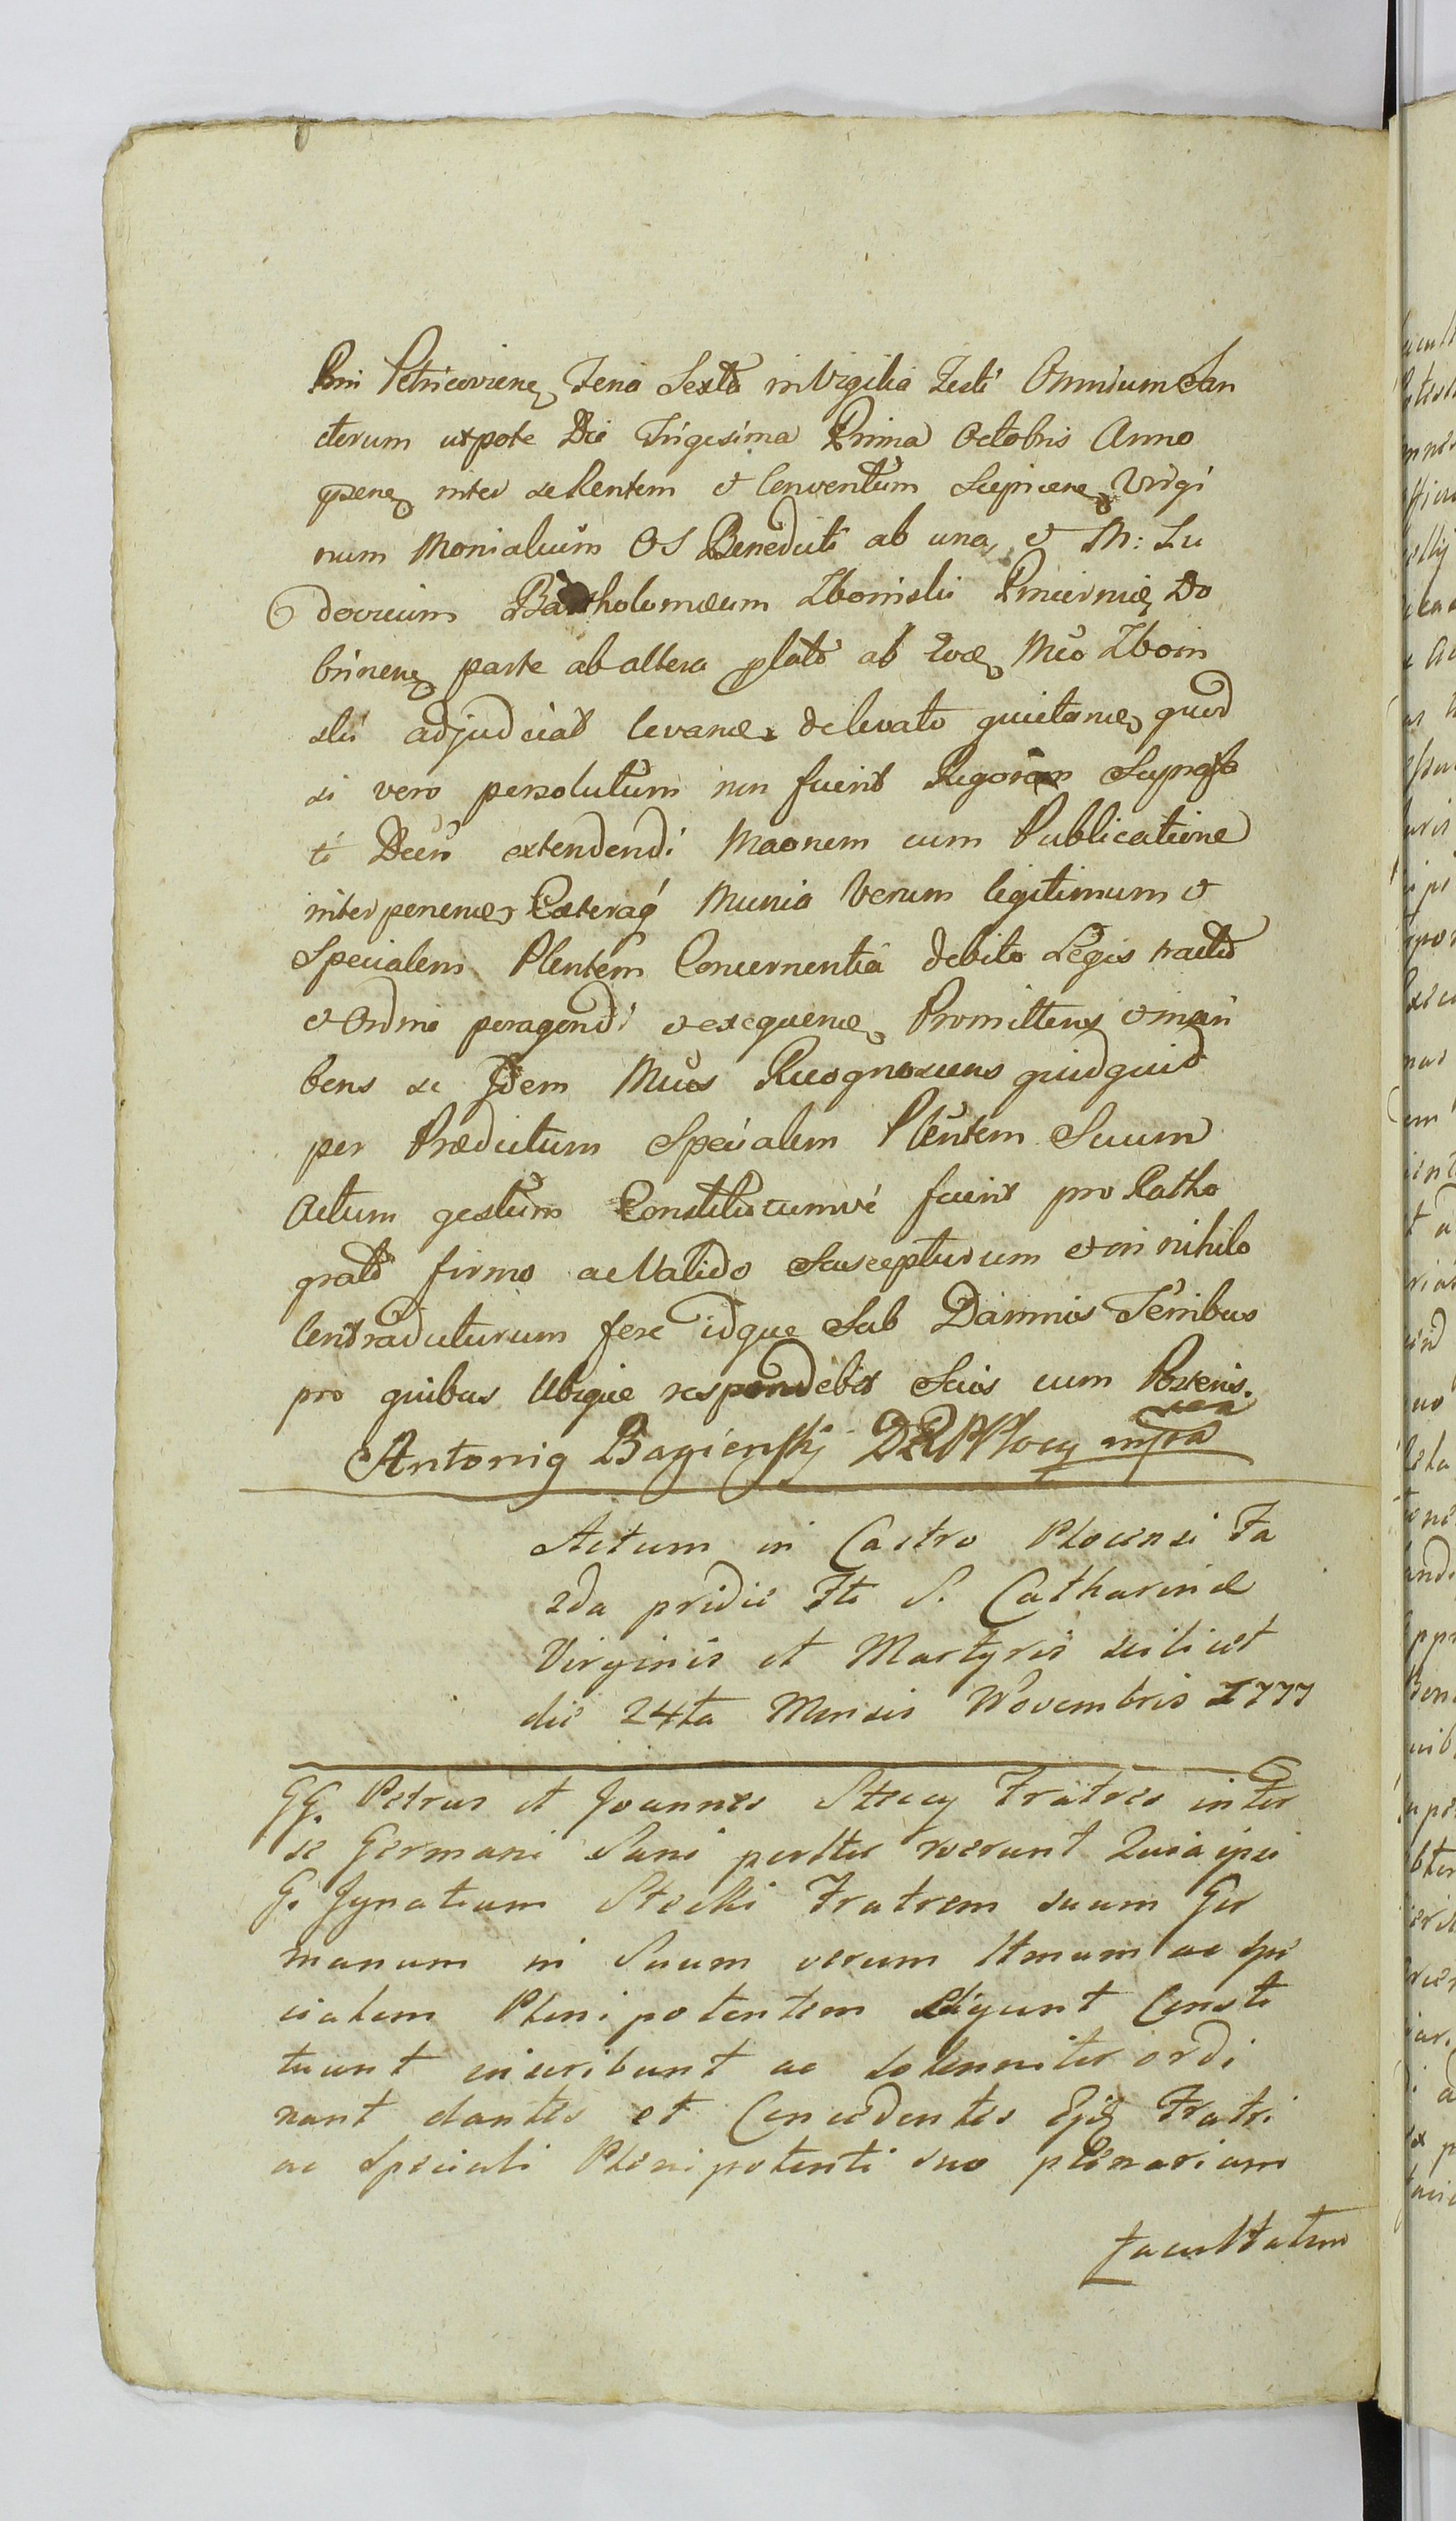 Pnii Petricoviens Feria Sexta in Vigilia Festi Omnium San
ctorum utpote Die Trigesima Prima Octobris Anno
inter se Rentem et Conventum Sierpcens Virgi
num Monialium OS Benedicti ab una, et M: Lu
dovicum Bartholomæum Zboinski Do
brinens parte ab altera plato ab Mco Zboin
ski adjudicat levand de levato quietand quod
si vero persolutum non fuerit Rigorem
ti Decti extendendi Maonem cum Publicatione
interponend Cæteraq Munia Verum legitimum et
Specialem Plentem Concernentia debito Legis tractu
et Ordine peragendi et exequend Promittens
bens se Idem Mcus Recognoscens quidquid
per Prædictum Specialem Plentem Suum
Actum gestum Constitutumve fuerit pro Ratho
grato firmo ac Valido Suscepturum et in nihilo
Contradicturum fere idque Sub Damnis Terribus
pro quibus Ubique respondebit Suis cum Posteris.
Antonig Bagieński DRPPlocg mpra
Actum in Castro Plocensi Fa
2da pridie Fti S. Catharinæ
Virginis et Martyris scilicet
die 24ta Mensis Novembris 1777
GG. Petrus et Joannes Steccy Fratres inter
se Germani Sani perlter roverunt Quia ipsi
G. Ignatium Stecki Fratrem suum Ger
manum in Suum verum ltmum ac spe
cialem Plenipotentem Eligunt Consti
tuunt inscribunt ac solenniter ordi
nant dantes et Concedentes Ejd Fratri
ac Speciali Plenipotenti suo plenariam
facultatem